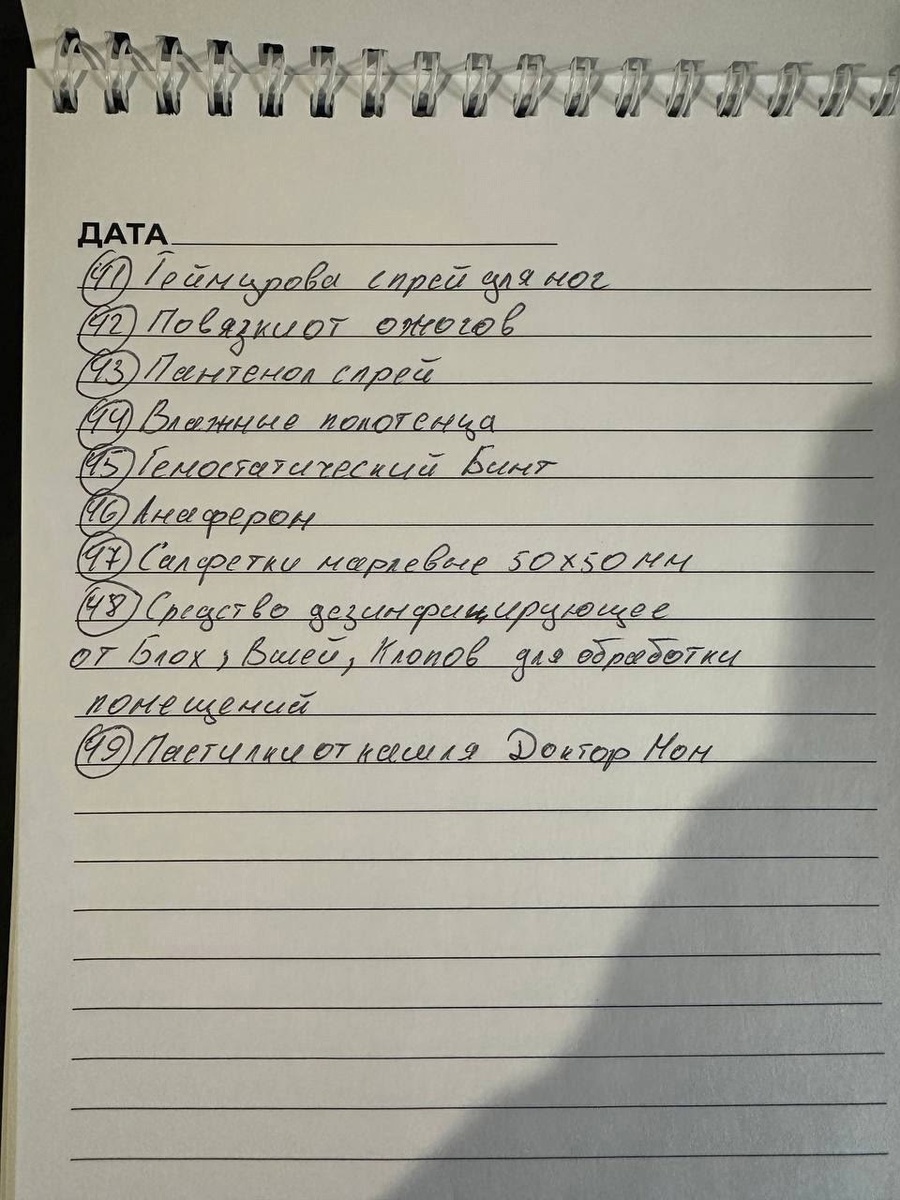 ДАТА
41 Теймурова спрей для ног
42 Повязки от ожогов
43 Пантенол спрей
44 Влажные полотенца
45 Гемостатический Бинт
46 Анаферон
47 Салфетки марлевые 50х50 мм
48 Средство дезинфицирующее
от Блох, Вшей, Клопов для обработки
помещений
49 Пастилки от кашля Доктор Мом